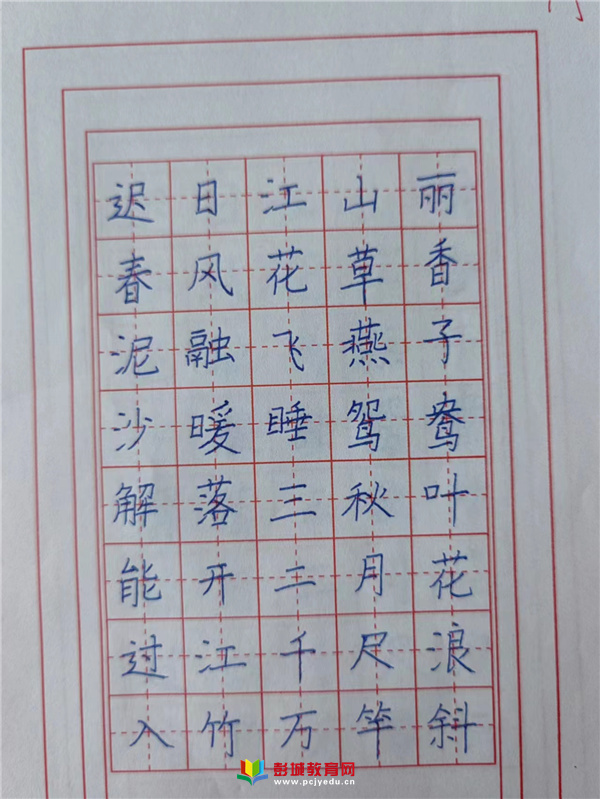 迟日江山丽
春风花草香
泥融飞燕子
沙暖睡鸳鸯
解落三秋叶
能开二月花
过江千尺浪
入竹万竿斜
彭城教育网
www.pcjyedu.cn